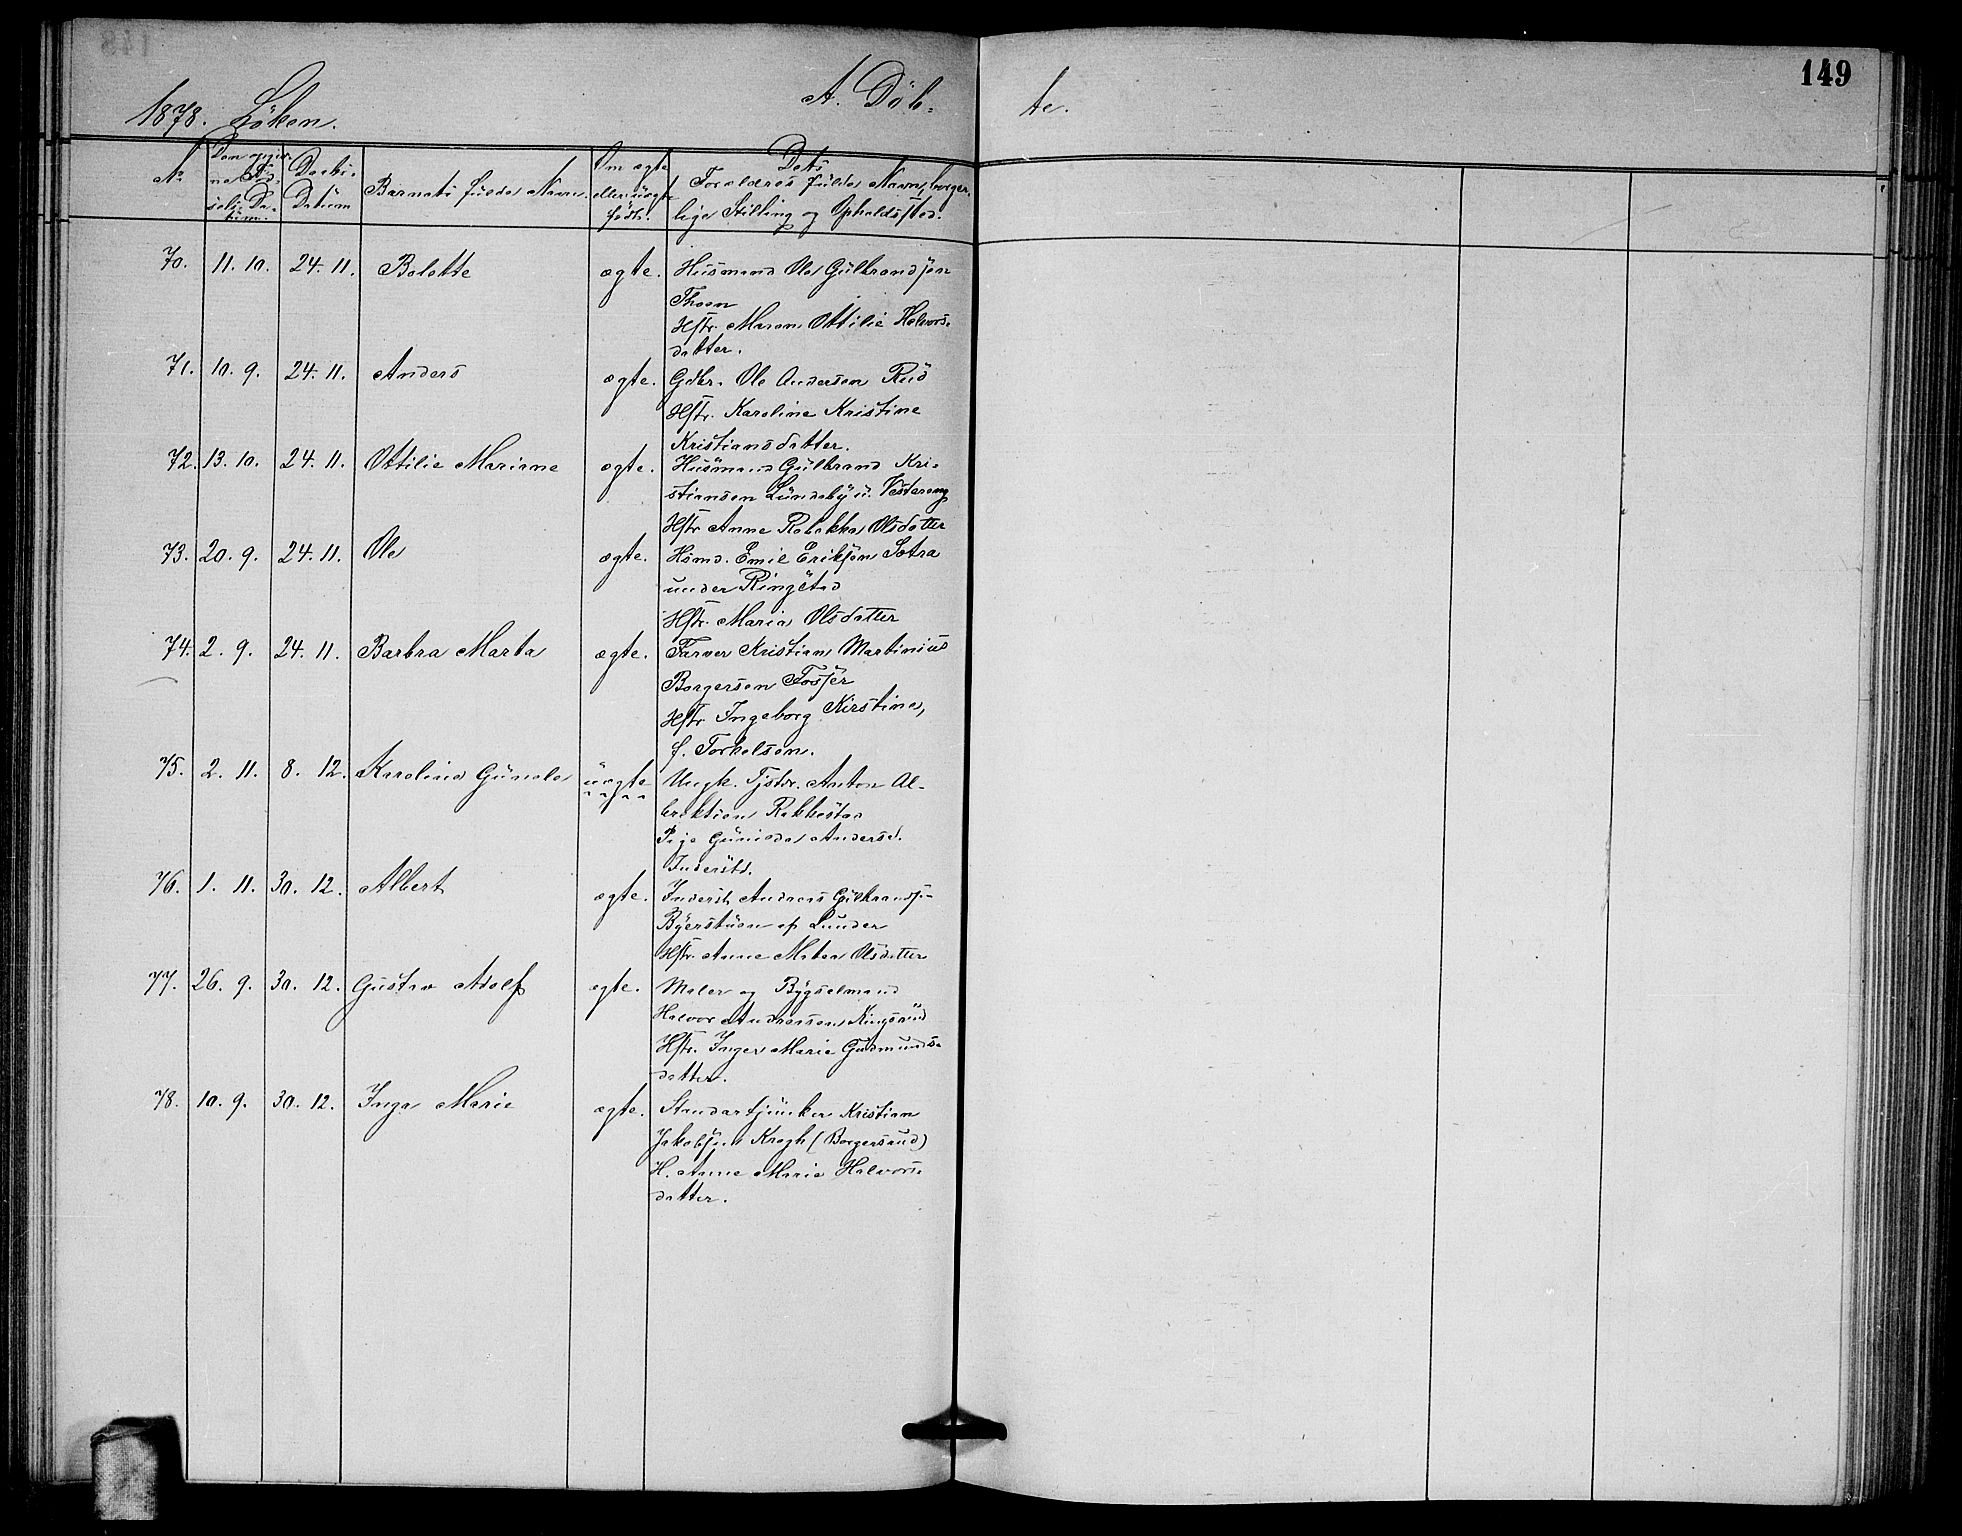 149
1878. Löken. A. Döb- te.
No Den opgivne Fødsels-Datum. Daabs-Datum Barnets fulde Navn. Om ægte eller uægte født. Dets Forældres fulde Navn, borgerlige Stilling og Opholdssted.
70. 11. 10. 24. 11. Bolette ægte. Husmand Ole Gulbrandsen
Thoen
Hstr. Maren Ottilie Halvors-
datter.
71. 10. 9. 24. 11. Anders ægte. Gdbr. Ole Andersen Rud
Hstr. Karoline Kristine
Kristiansdatter.
72. 13. 10. 24. 11. Ottilie Mariane ægte. Husmand Gulbrand Kri-
stiansen Lundeby u. Vestereng
Hstr. Anne Rebekka Olsdatter
73. 20. 9. 24. 11. Ole ægte. Hsmd. Emil Eriksen Sætra
under Ringstad
Hstr. Maria Olsdatter
74. 2. 9. 24. 11. Barbra Marta ægte. Farver Kristian Martinius
Borgersen Fosser
Hstr. Ingeborg Kirstine,
f. Torkelsen.
75. 2. 11. 8. 12. Karoline Gunela uægte Ungk. Tjstdr. Anton Al-
brektsen Rakkestad
Pige Gunilda Andersd.
Inderstd.
76. 1. 11. 30. 12. Albert ægte. Inderst Andreas Gulbrands.
Byerstuen af Lunder
Hstr. Anne Matea Olsdatter
77. 26. 9. 30. 12. Gustav Adolf ægte. Maler og Bygselmand
Halvor Andreassen Kingsrud
Hstr. Inger Marie Gudmunds-
datter.
78. 10. 9. 30. 12. Inga Marie ægte. Standartjunker Kristian
Jakobsen Krogh (Borgersrud)
H. Anne Marie Halvors-
datter.